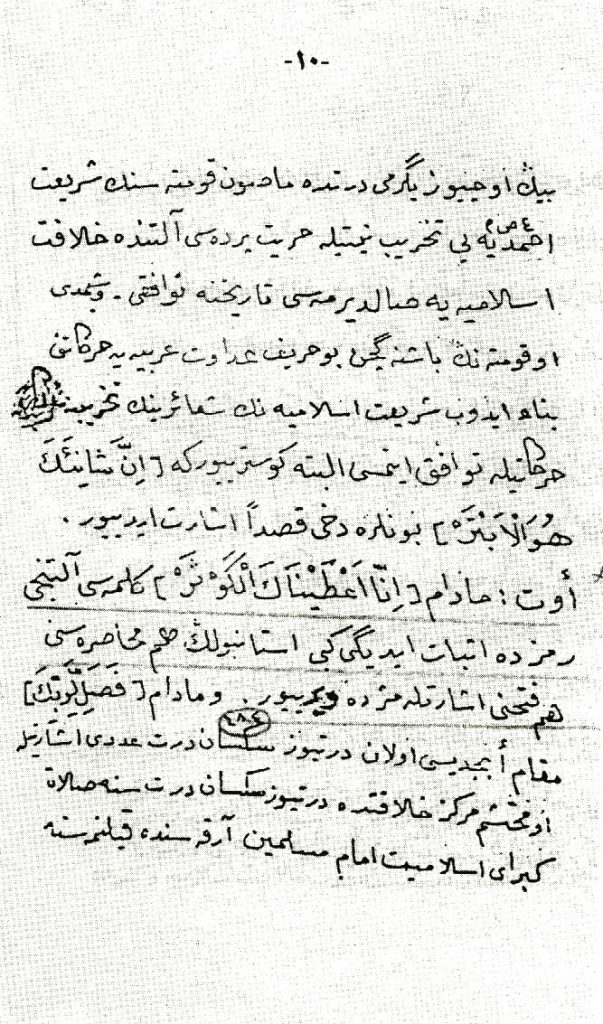 -١٠-
بيڭ اوچيوز يگرمى درتده ماصون قومته سنڭ شريعت
احمديه يى تخريب نيتيله حريت پرده سى آلتنده خلافت
اسلاميه يه صالديرمه سى تاريخنه توافقى . و شمدى
او قومته نڭ باشنه گچن بو حريف عداوت عربيه يه حركاتنى
بناء ايدوب شريعت اسلاميه نڭ شعائرينڭ تخريبنه
حركاتيله توافق ايتمسى البته كوستريوركه [ اِنَّ شَانِئَكَ
هُوَ الْاَبْتَرُ ] بونلره دخى قصداً اشارت ايدييور .
أوت : مادام [ اِنَّا اَعْطَيْنَاكَ الْكَوْثَرَ ] كلمه سى آلتنجى
رمزده اثبات ايديلديگى كبى استانبولڭ هم محاصره سنى
هم فتحنى اشارتله مژده ويرييور . و مادام [ فَصَلِّ لِرَبِّكَ ]
مقام أبجديسى اولان درتيوز سكسان درت عددى اشارتيله
٤٨٤
او محتشم مركز خلافتده درتيوز سكسان درت سنه صلاة
كبراى اسلاميت امام مسلمين آرقه سنده قيلنمه سنه